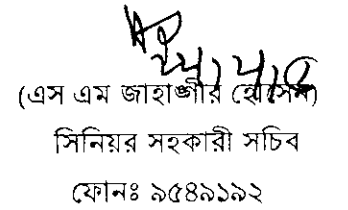 (এস এম জাহাঙ্গীর হোসেন)
সিনিয়র সহকারী সচিব
ফোনঃ ৯৫৪৯১৯২